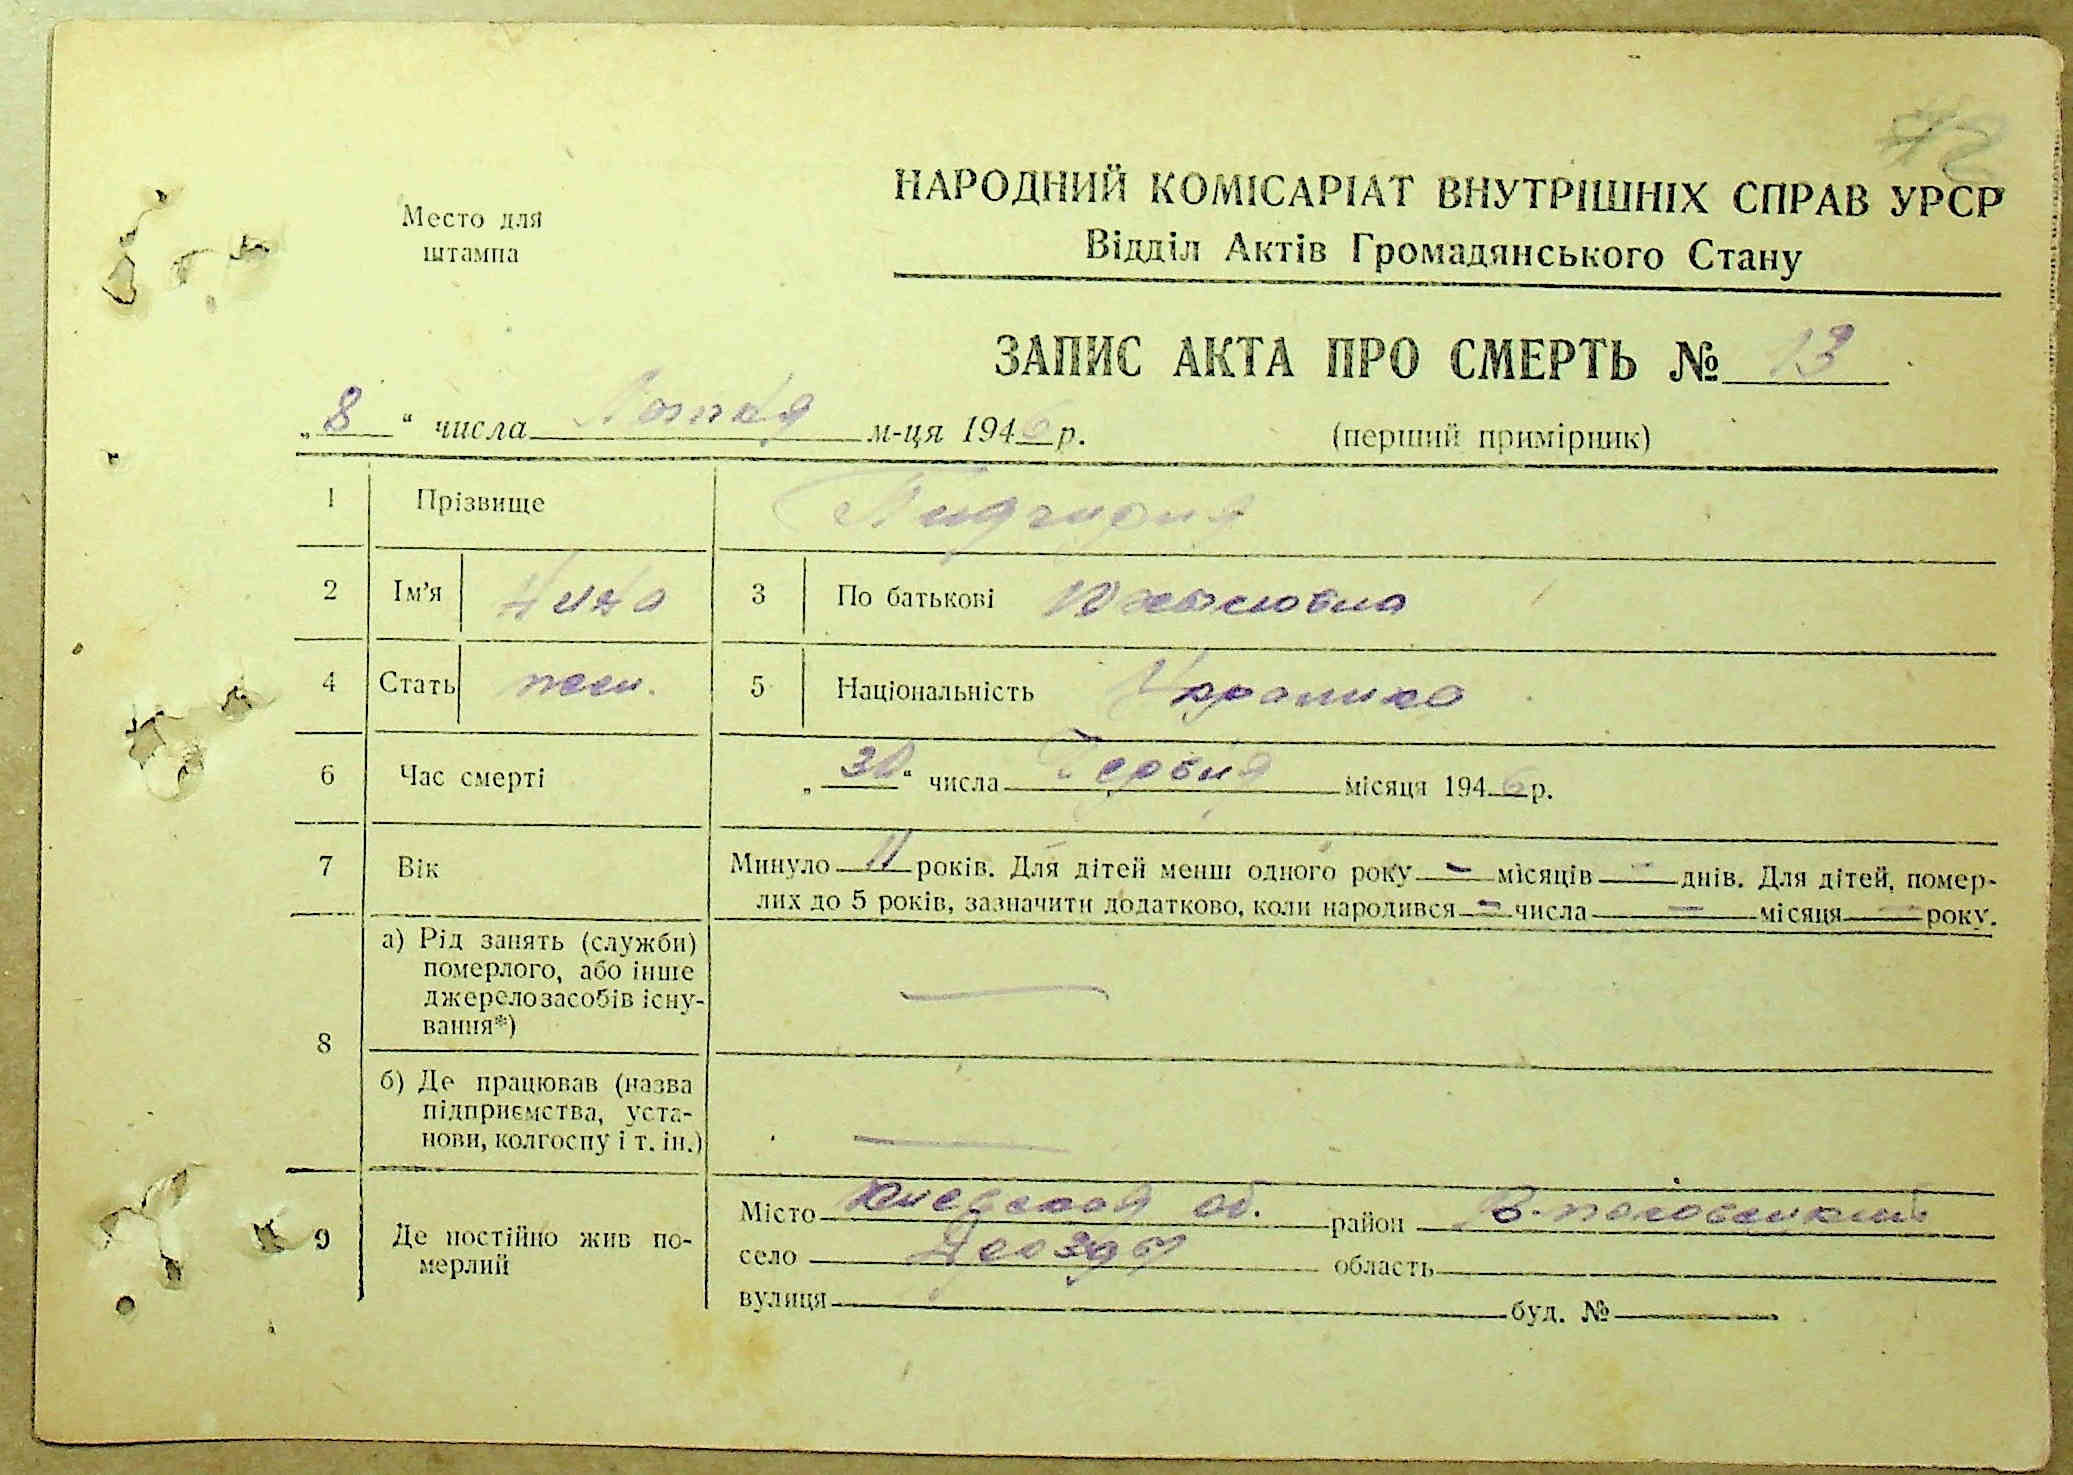 72
Место для
штампа
НАРОДНИЙ КОМІСАРІАТ ВНУТРІШНІХ СПРАВ УРСР
Відділ Актів Громадянського Стану
ЗАПИС АКТА ПРО СМЕРТЬ № 13
„8“ числа м-ця 1946 р. (перший примірник)
1 Прізвище
2 Ім'я 3 По батькові
4 Стать жен. 5 Національність Украинка
6 Час смерті „30“ числа Червня місяця 1946 р.
7 Вік Минуло 11 років. Для дітей менш одного року — місяців — днів. Для дітей, помер-
лих до 5 років, зазначити додатково, коли народився — числа — місяця — року.
8 а) Рід занять (служби)
померлого, або інше
джерело засобів існу-
вання*) —
б) Де працював (назва
підприємства, уста-
нови, колгоспу і т. ін.) —
9 Де постійно жив по-
мерлий
Місто Киевская об. район В-половецкий
село Дрозды область
вулиця буд. №